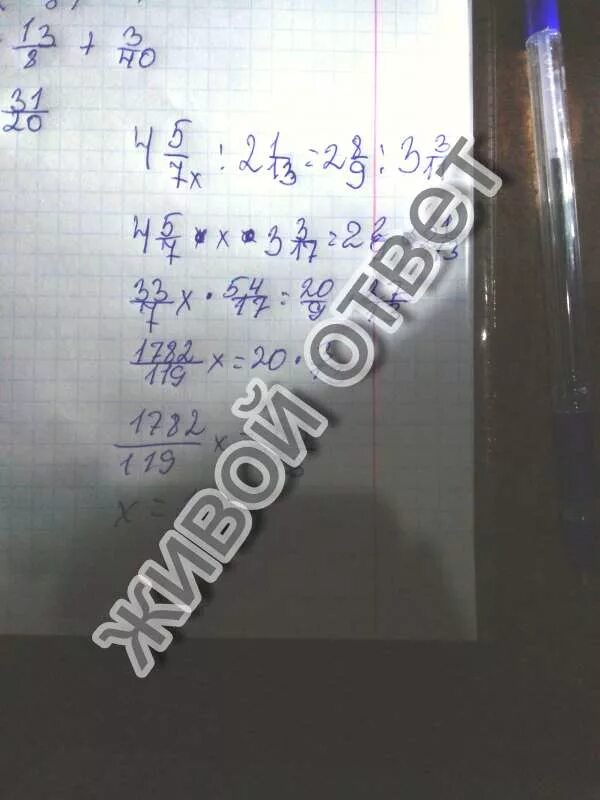 13/8 + 3/40
31/20
4 5/7x : 2 1/13 = 2 8/9 : 3 3/1
4 5/7 • x • 3 3/17 = 2
33/7 x • 54/17 = 20/9
1782/119 x = 20 •
1782/119 x =
x =
ЖИВОЙ ОТВЕТ